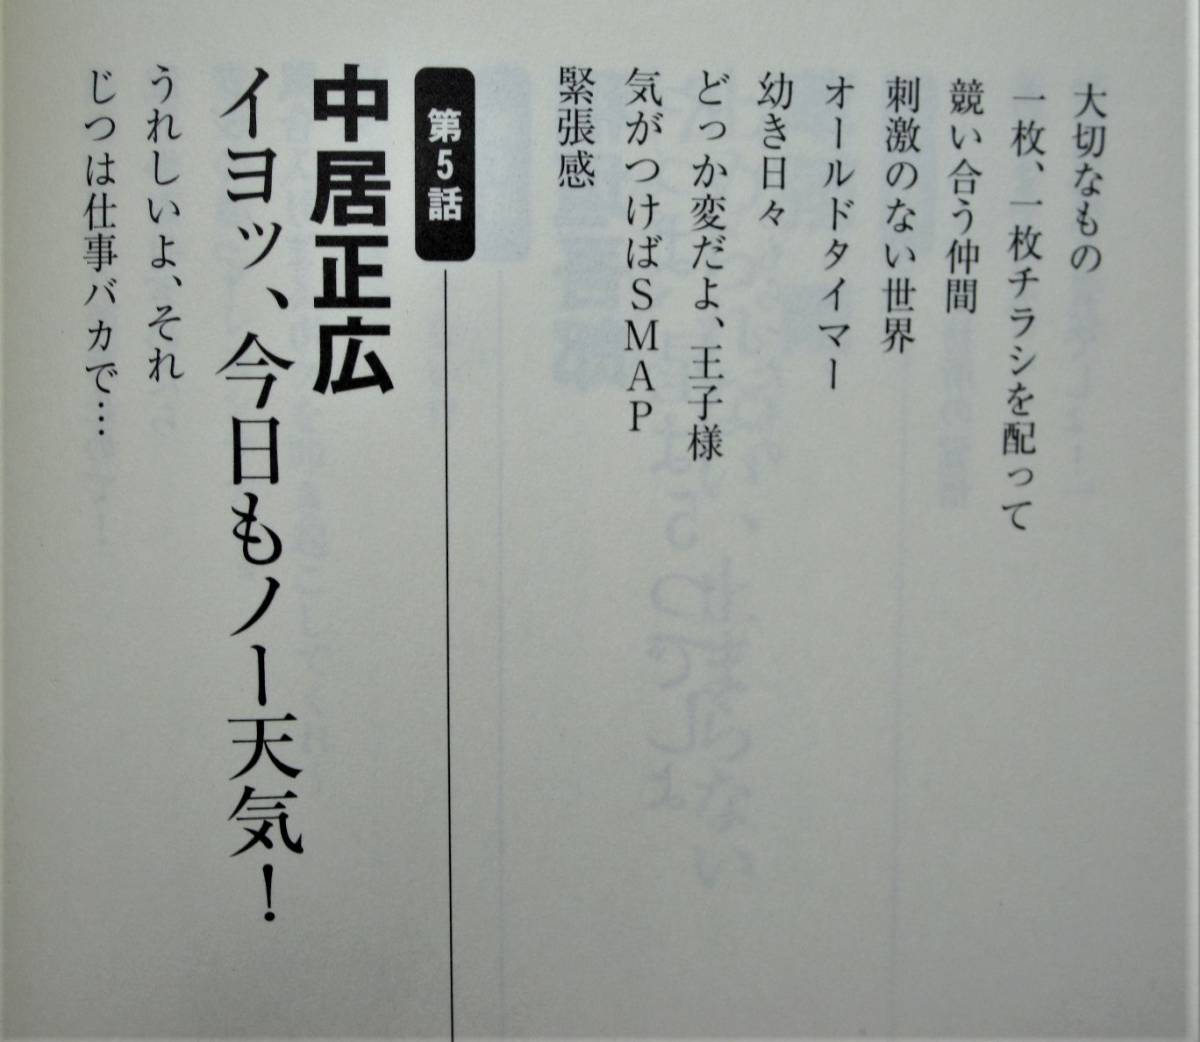 大切なもの
一枚、一枚チラシを配って
競い合う仲間
刺激のない世界
オールドタイマー
幼き日々
どっか変だよ、王子様
気がつけばSMAP
緊張感
第5話
中居正広
イヨッ、今日もノー天気！
うれしいよ、それ
じつは仕事バカで…